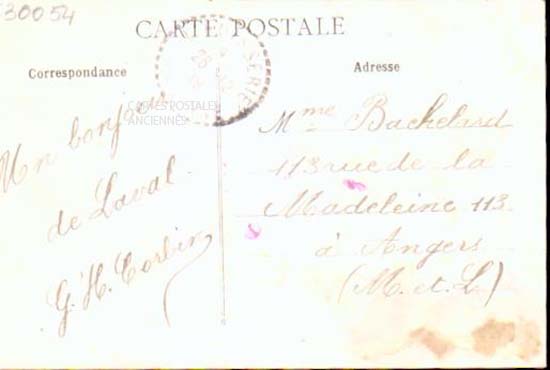 30054
CARTE POSTALE
Correspondance
Adresse
CARTES POSTALES
ANCIENNES
Un bonjour
de Laval
G. H. Corbin
Mme Bachelard
113 rue de la
Madeleine 113
à Angers
(M. et L.)